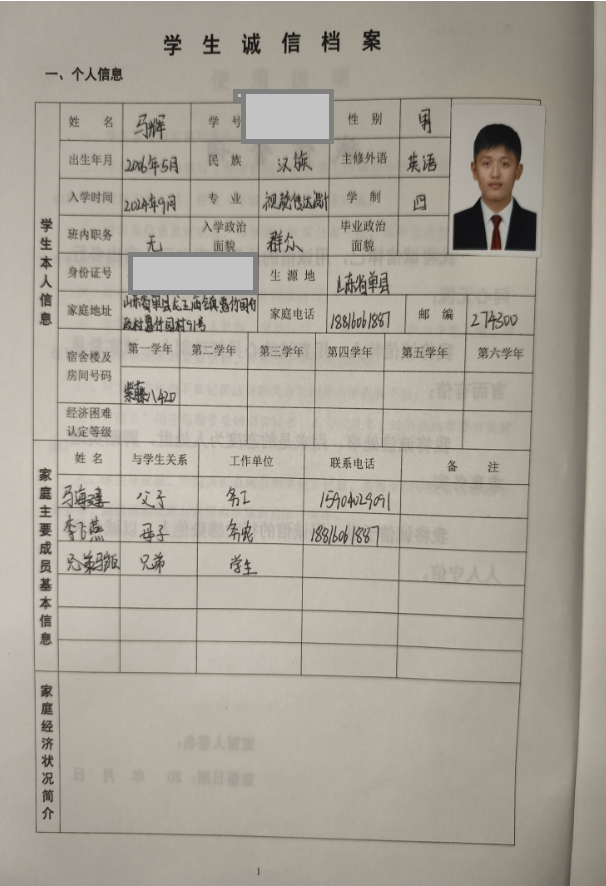 学生诚信档案
一、个人信息
学生本人信息
姓 名 马辉 学号 性 别 男
出生年月 2006年5月 民 族 汉族 主修外语 英语
入学时间 2024年9月 专 业 视觉传达设计 学 制 四
班内职务 无 入学政治面貌 群众 毕业政治面貌
身份证号 生 源 地 山东省单县
家庭地址 山东省单县龙王庙镇 家庭电话 18816061887 邮 编 274300
村91号
宿舍楼及房间号码 第一学年 第二学年 第三学年 第四学年 第五学年 第六学年
八420
经济困难认定等级
家庭主要成员基本信息
姓 名 与学生关系 工作单位 联系电话 备 注
马海建 父子 务工 15904029091
李飞燕 母子 务农 18816061887
兄弟 兄弟 学生
家庭经济状况简介
1